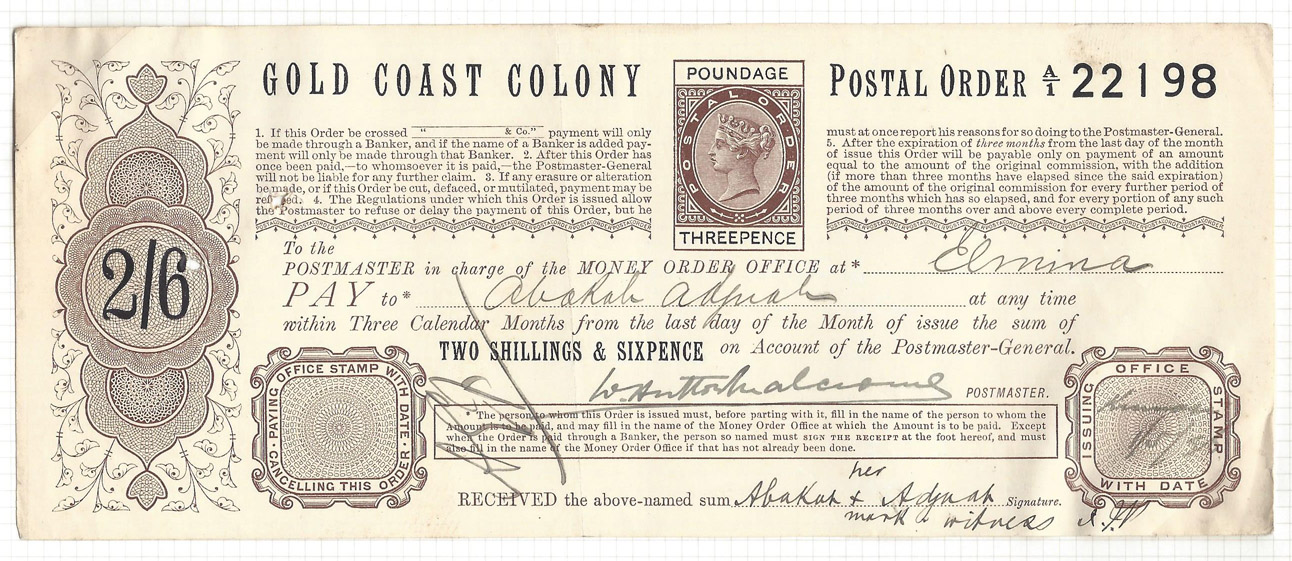 GOLD COAST COLONY
POUNDAGE
POSTAL ORDER
THREEPENCE
POSTAL ORDER A/1 22198
1. If this Order be crossed " & Co." payment will only
be made through a Banker, and if the name of a Banker is added pay-
ment will only be made through that Banker. 2. After this Order has
once been paid,—to whomsoever it is paid,—the Postmaster-General
will not be liable for any further claim. 3. If any erasure or alteration
be made, or if this Order be cut, defaced, or mutilated, payment may be
refused. 4. The Regulations under which this Order is issued allow
the Postmaster to refuse or delay the payment of this Order, but he
must at once report his reasons for so doing to the Postmaster-General.
5. After the expiration of three months from the last day of the month
of issue this Order will be payable only on payment of an amount
equal to the amount of the original commission, with the addition
(if more than three months have elapsed since the said expiration)
of the amount of the original commission for every further period of
three months which has so elapsed, and for every portion of any such
period of three months over and above every complete period.
2/6
To the
POSTMASTER in charge of the MONEY ORDER OFFICE at* Elmina
PAY to* Abakah Adjuah at any time
within Three Calendar Months from the last day of the Month of issue the sum of
TWO SHILLINGS & SIXPENCE on Account of the Postmaster-General.
POSTMASTER.
* The person to whom this Order is issued must, before parting with it, fill in the name of the person to whom the
Amount is to be paid, and may fill in the name of the Money Order Office at which the Amount is to be paid. Except
when the Order is paid through a Banker, the person so named must SIGN THE RECEIPT at the foot hereof, and must
also fill in the name of the Money Order Office if that has not already been done.
her
RECEIVED the above-named sum Abakah + Adjuah Signature.
mark witness
PAYING OFFICE STAMP WITH DATE. CANCELLING THIS ORDER.
ISSUING OFFICE STAMP WITH DATE